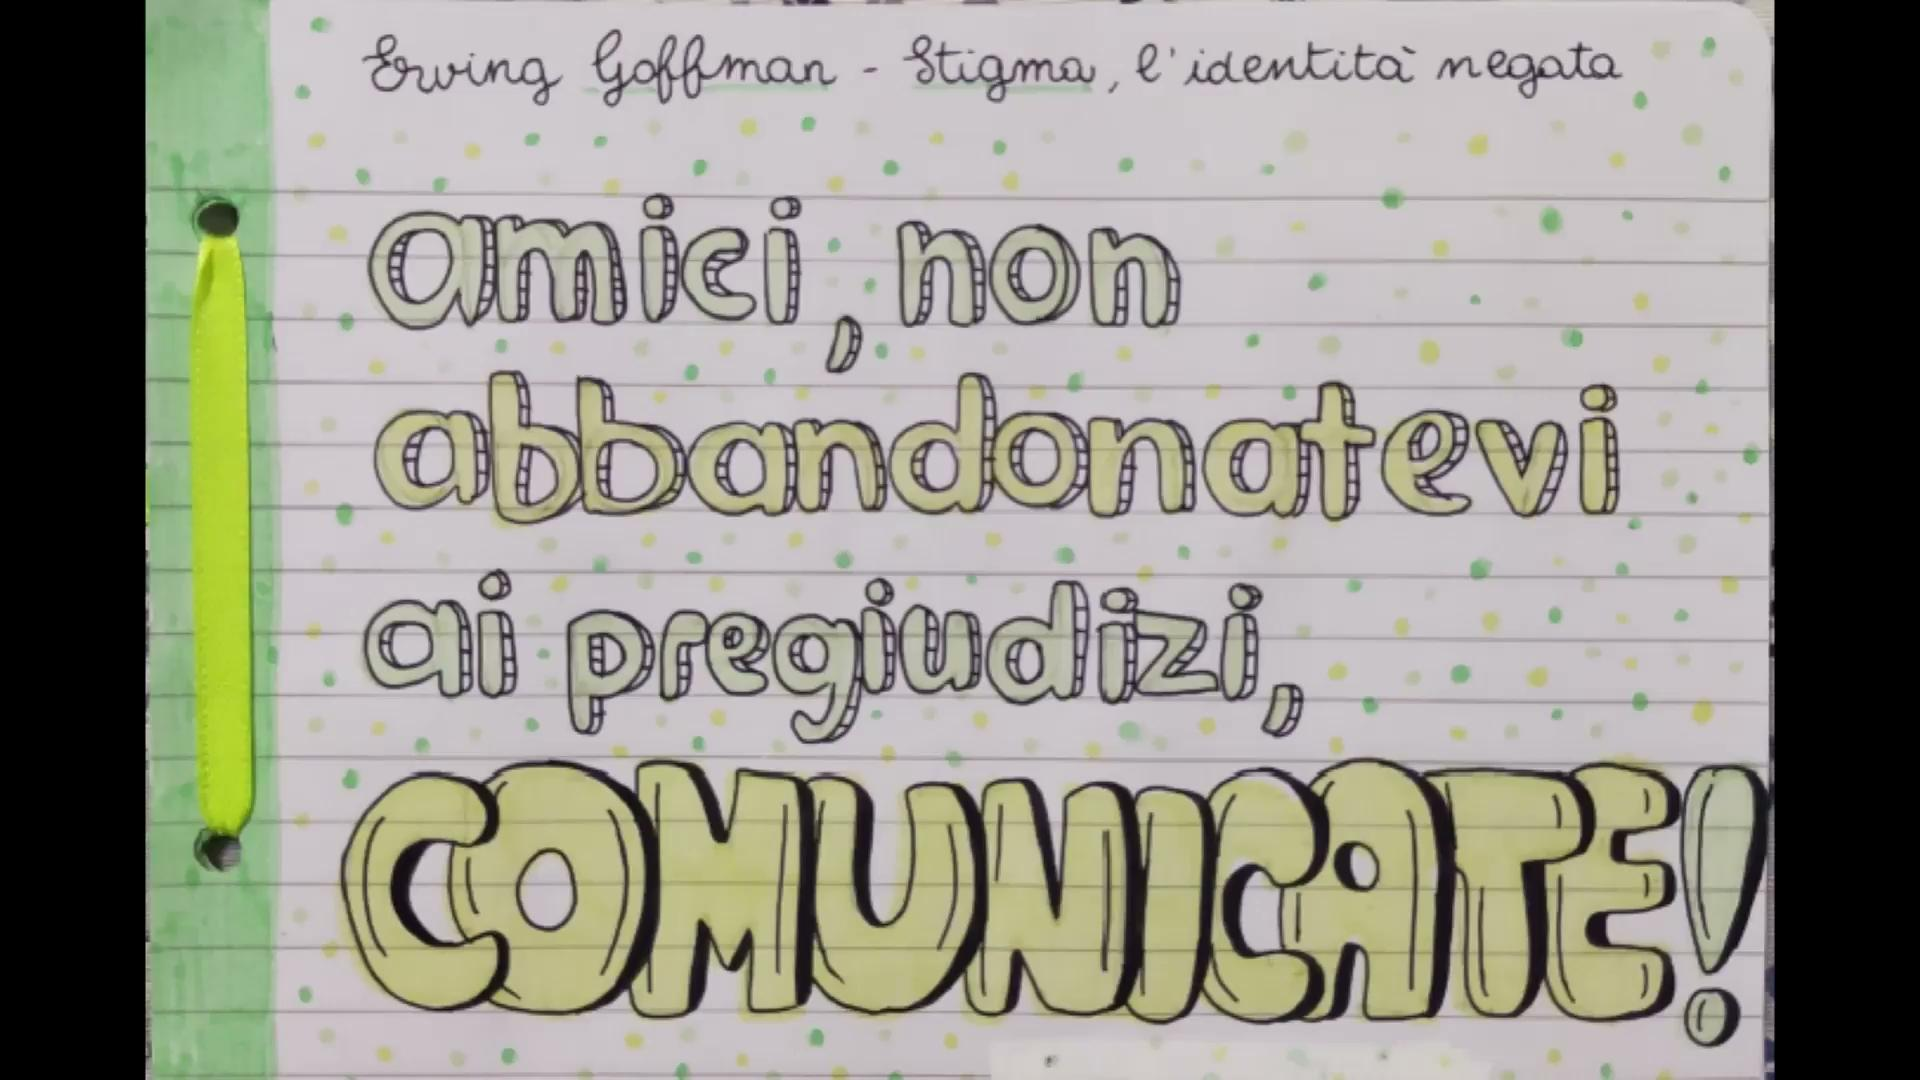 Erving Goffman - Stigma, l'identità negata
amici, non
abbandonatevi
ai pregiudizi,
COMUNICATE!